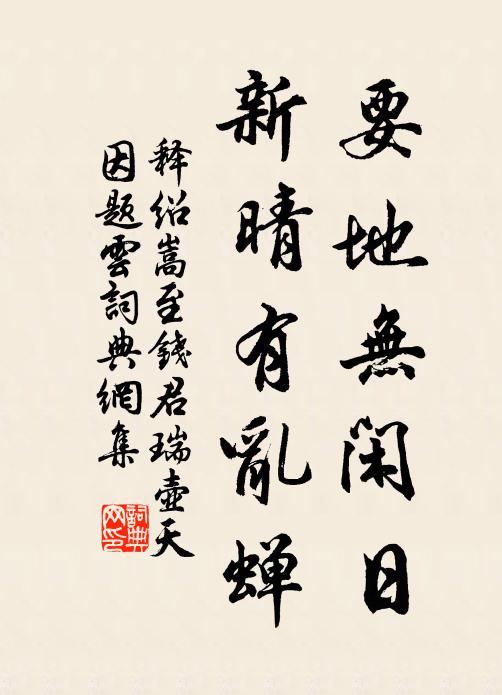 要地無閑日
新晴有亂蝉
释绍嵩至錢君瑞壶天
因题雲詞典網集
詞典
网印